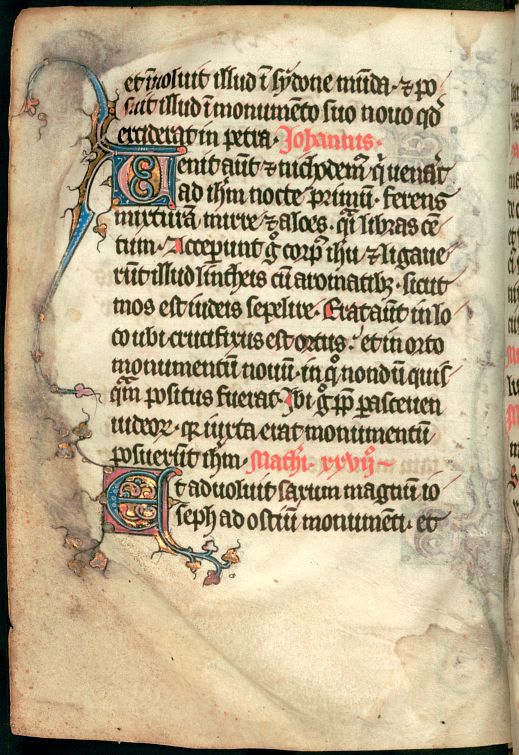 et ĩuoluit illud ĩ sẏdone mũda · ⁊ po
suit illud ĩ monumẽto suo nouo qd̾
exciderat in petra · Johannis ·
Uenit aũt ⁊ nichodem᷒ q̇ uenãt
ad ihm̃ nocte primũ · ferens
mixturã mirre ⁊ aloes · q̃i libras cẽ
tum · Acceperunt g̊ corp᷒ ihũ ⁊ ligaue
rũt illud lĩntheis cũ aromatibȝ · sicut
mos est iudeis sepelire · Erat aũt in lo
co ubi crucifixus est ortus : et in orto
monumentũ nouũ · in q̊ nondũ quis
q̃m positus fuerat · Jbi g̊ pp̃ parasceuen
iudeoꝝ · qꝛ iuxta erat monumentũ
posuerũt ihm̃ · Mathi · xxvij ~
Et aduoluit saxum magnũ io
seph ad ostiũ monumẽti · et